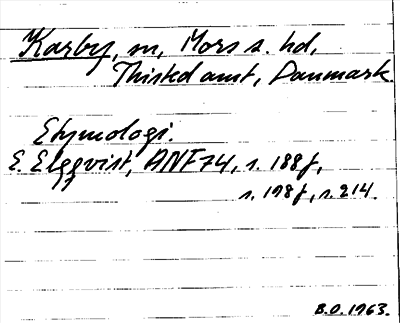 Karby, sn, Mors s. hd,
Thisted amt, Danmark.
Etymologi.
E. Elgqvist, ANF 74, s. 188f,
s. 198f, s. 214.
B.O. 1963.